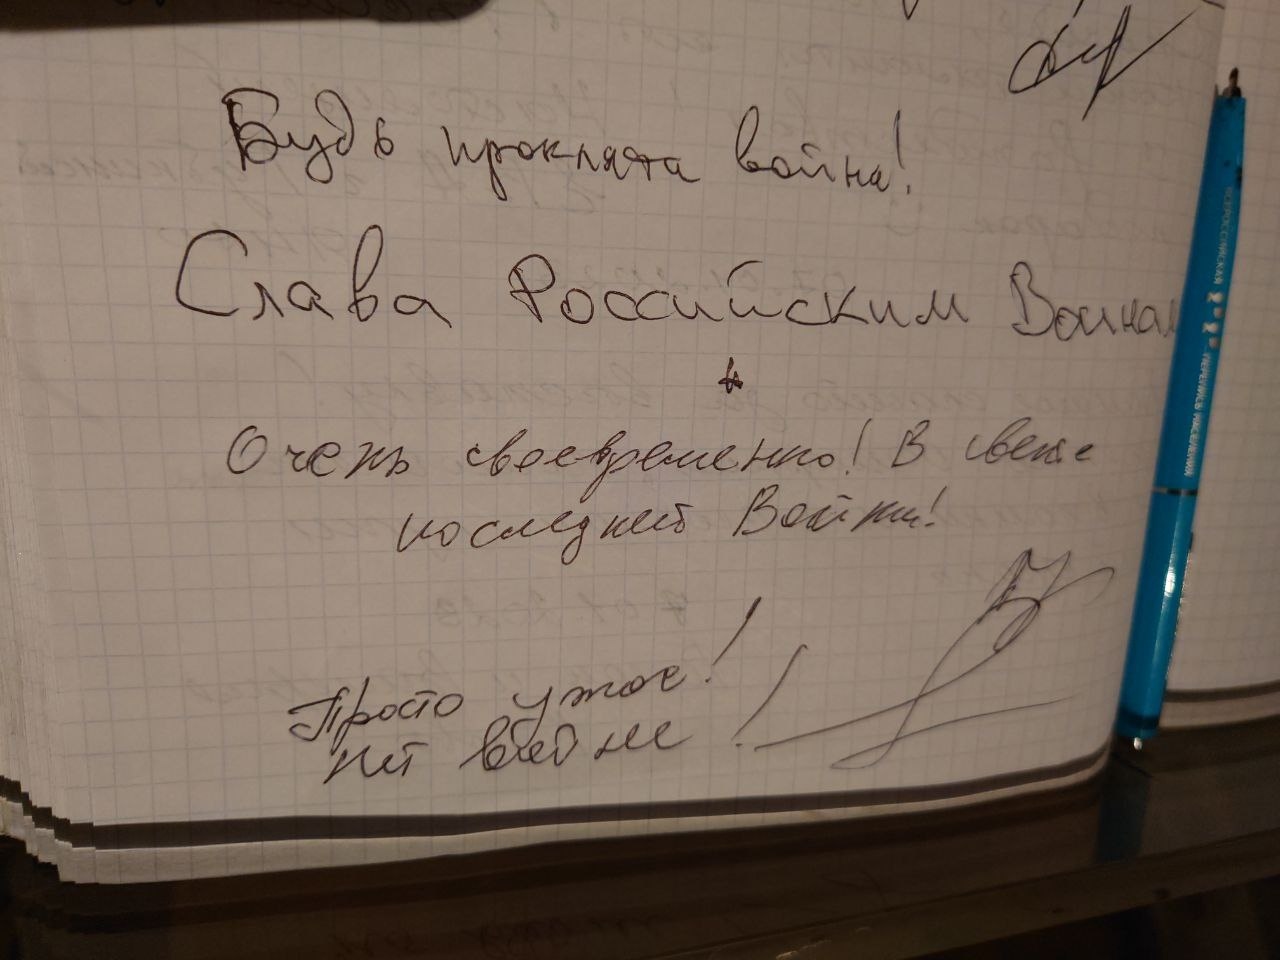 Будь проклята война!
Слава Российским Воинам
Очень своевременно! В свете
последней Войны!
Просто ужас!
Нет войне!
ВСЕРОССИЙСКАЯ ПЕРЕПИСЬ НАСЕЛЕНИЯ